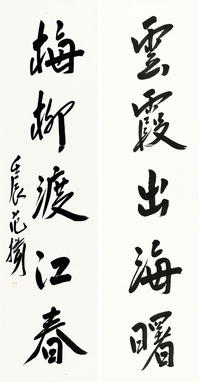 雲霞出海曙
梅柳渡江春
壬辰 范揚